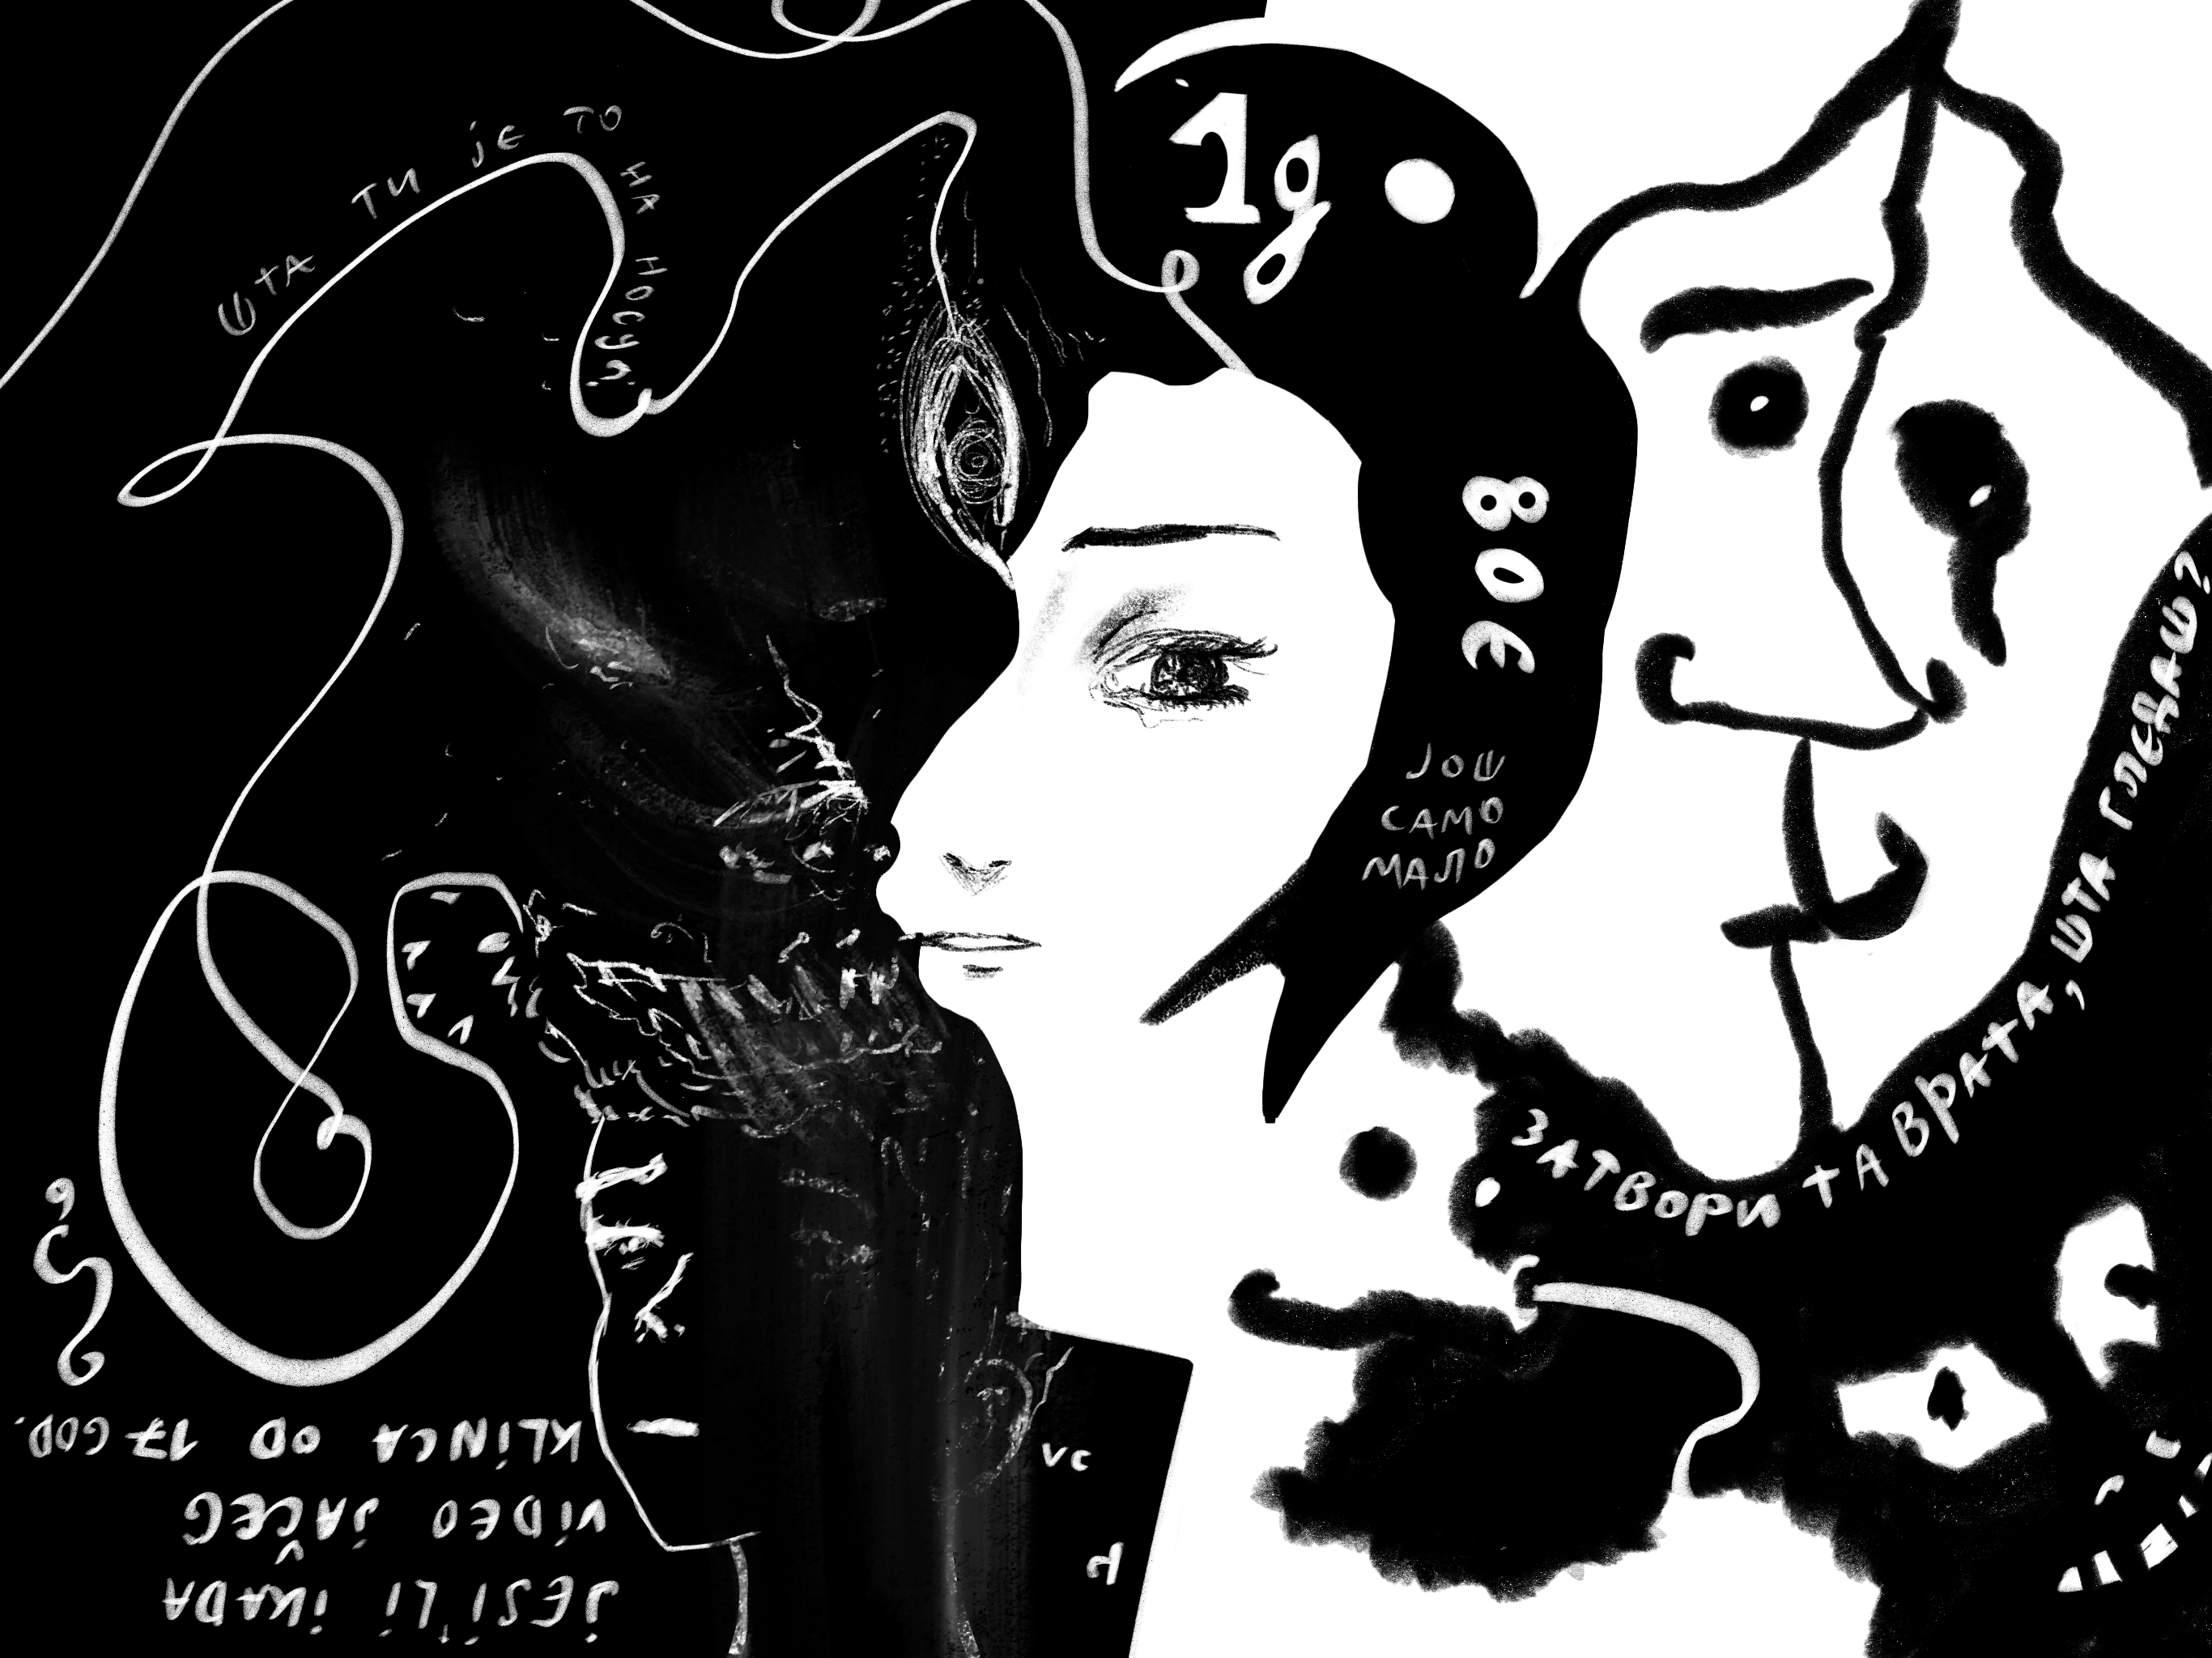 ШТА ТИ ЈЕ ТО НА НОСУ?
1g
80€
ЈОШ
САМО
МАЛО
ЗАТВОРИ ТА ВРАТА, ШТА ГЛЕДАШ?
JESI LI IKADA
VIDEO JAČEG
KLINCA OD 17 GOD.
VC